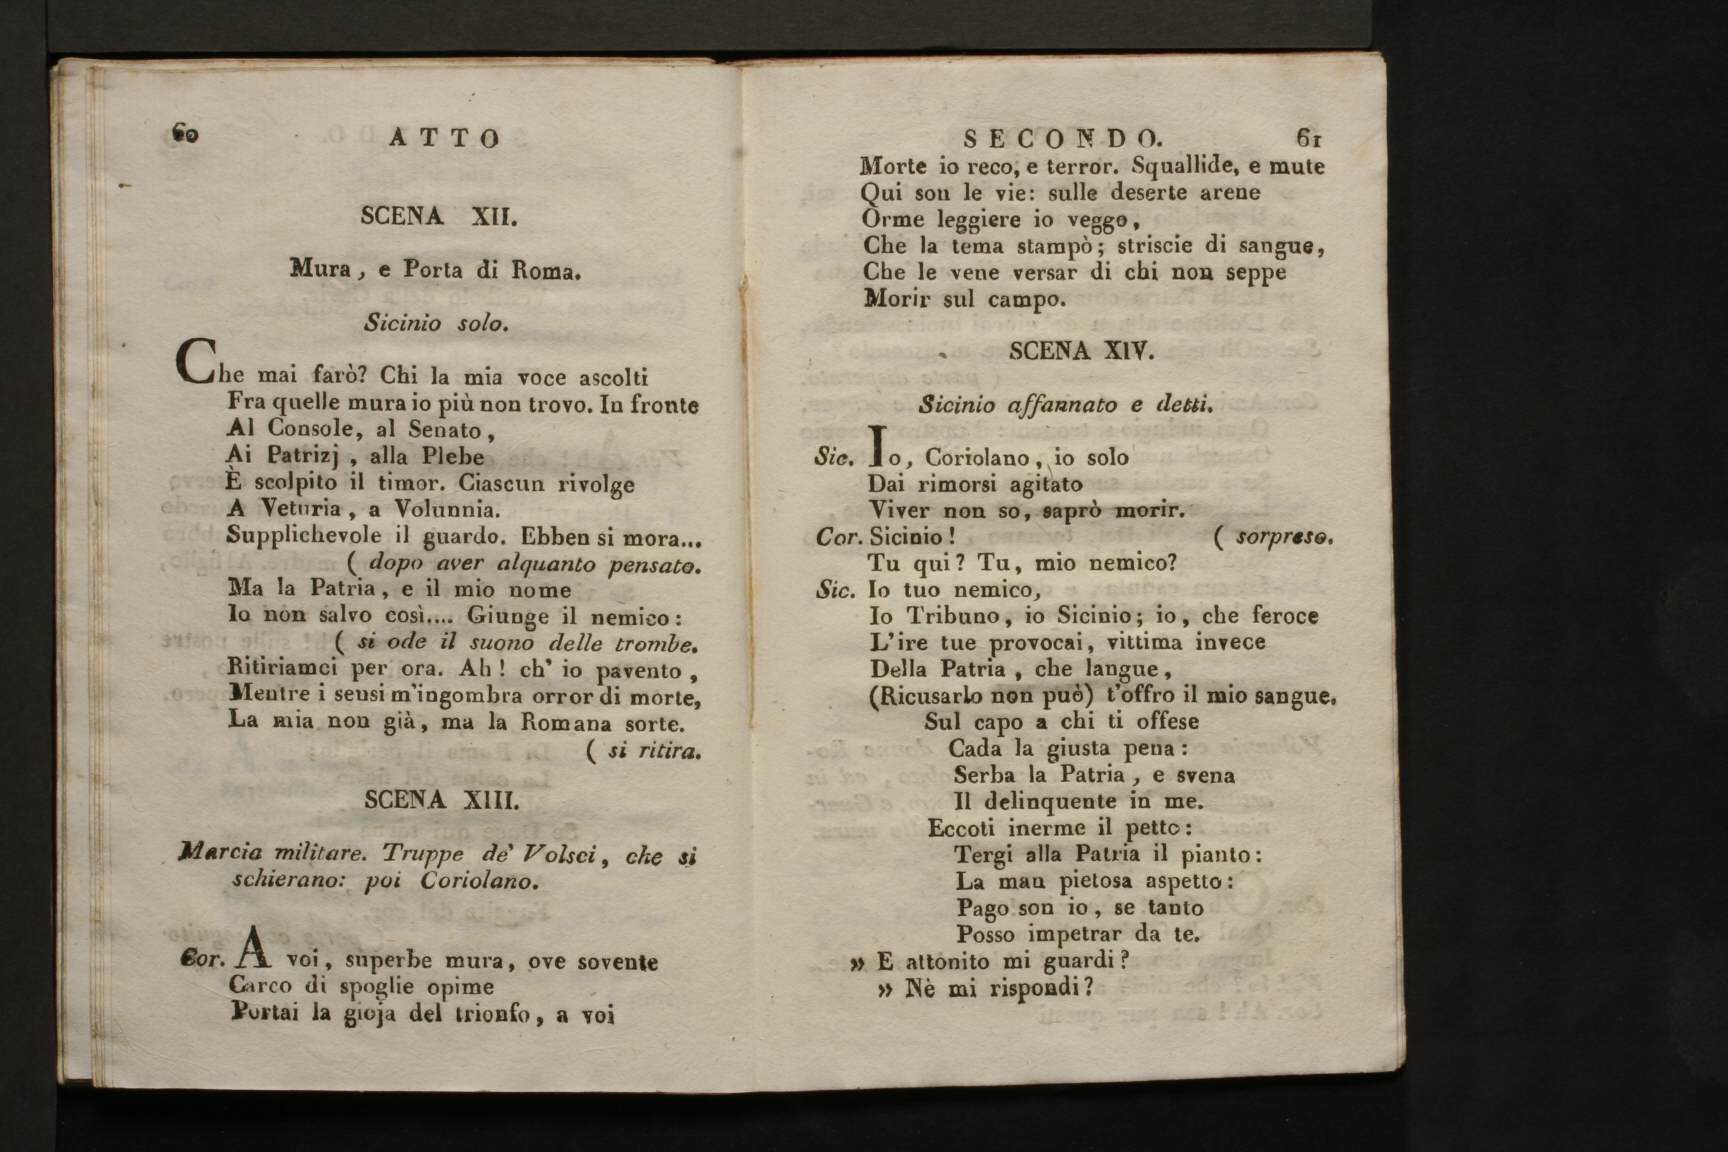 60 ATTO
SCENA XII.
Mura, e Porta di Roma.
Sicinio solo.
Che mai farò? Chi la mia voce ascolti
Fra quelle mura io più non trovo. In fronte
Al Console, al Senato,
Ai Patrizj, alla Plebe
È scolpito il timor. Ciascun rivolge
A Veturia, a Volunnia.
Supplichevole il guardo. Ebben si mora...
( dopo aver alquanto pensato.
Ma la Patria, e il mio nome
Io non salvo così.... Giunge il nemico:
( si ode il suono delle trombe.
Ritiriamci per ora. Ah! ch' io pavento,
Mentre i sensi m'ingombra orror di morte,
La mia non già, ma la Romana sorte.
( si ritira.
SCENA XIII.
Marcia militare. Truppe de' Volsci, che si
schierano: poi Coriolano.
Cor. A voi, superbe mura, ove sovente
Carco di spoglie opime
Portai la gioja del trionfo, a voi
SECONDO. 61
Morte io reco, e terror. Squallide, e mute
Qui son le vie: sulle deserte arene
Orme leggiere io veggo,
Che la tema stampò; striscie di sangue,
Che le vene versar di chi non seppe
Morir sul campo.
SCENA XIV.
Sicinio affannato e detti.
Sic. Io, Coriolano, io solo
Dai rimorsi agitato
Viver non so, saprò morir.
Cor. Sicinio! ( sorpreso.
Tu qui? Tu, mio nemico?
Sic. Io tuo nemico,
Io Tribuno, io Sicinio; io, che feroce
L'ire tue provocai, vittima invece
Della Patria, che langue,
(Ricusarlo non può) t'offro il mio sangue.
Sul capo a chi ti offese
Cada la giusta pena:
Serba la Patria, e svena
Il delinquente in me.
Eccoti inerme il petto:
Tergi alla Patria il pianto:
La man pietosa aspetto:
Pago son io, se tanto
Posso impetrar da te.
» E attonito mi guardi?
» Nè mi rispondi?